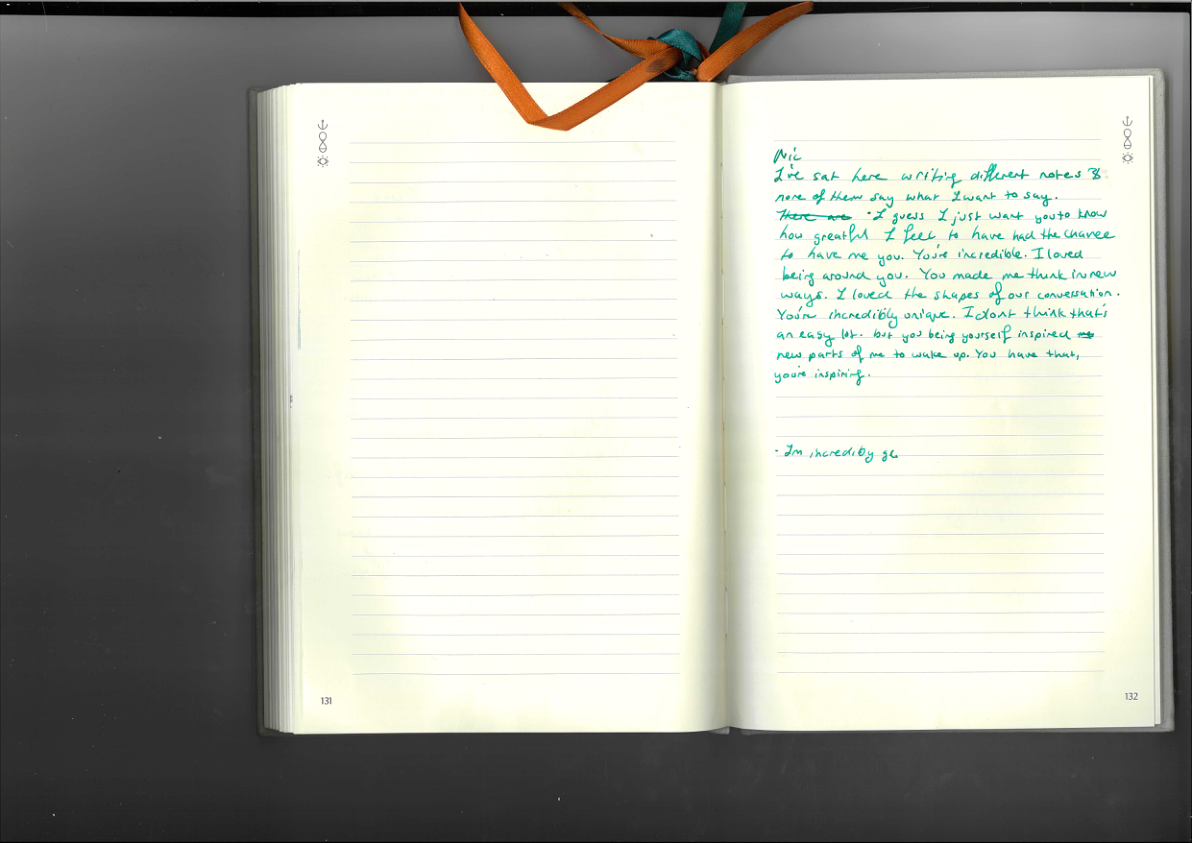 Nic
I've sat here writing different notes &
none of them say what I want to say.
There are · I guess I just want you to know
how greatful I feel to have had the chance
to have me you. You're incredible. I loved
being around you. You made me think in new
ways. I loved the shapes of our conversation.
You're incredibly unique. I dont think that's
an easy lot. but you being yourself inspired
new parts of me to wake up. You have that,
you're inspiring.
· Im incredibly ge
131
132